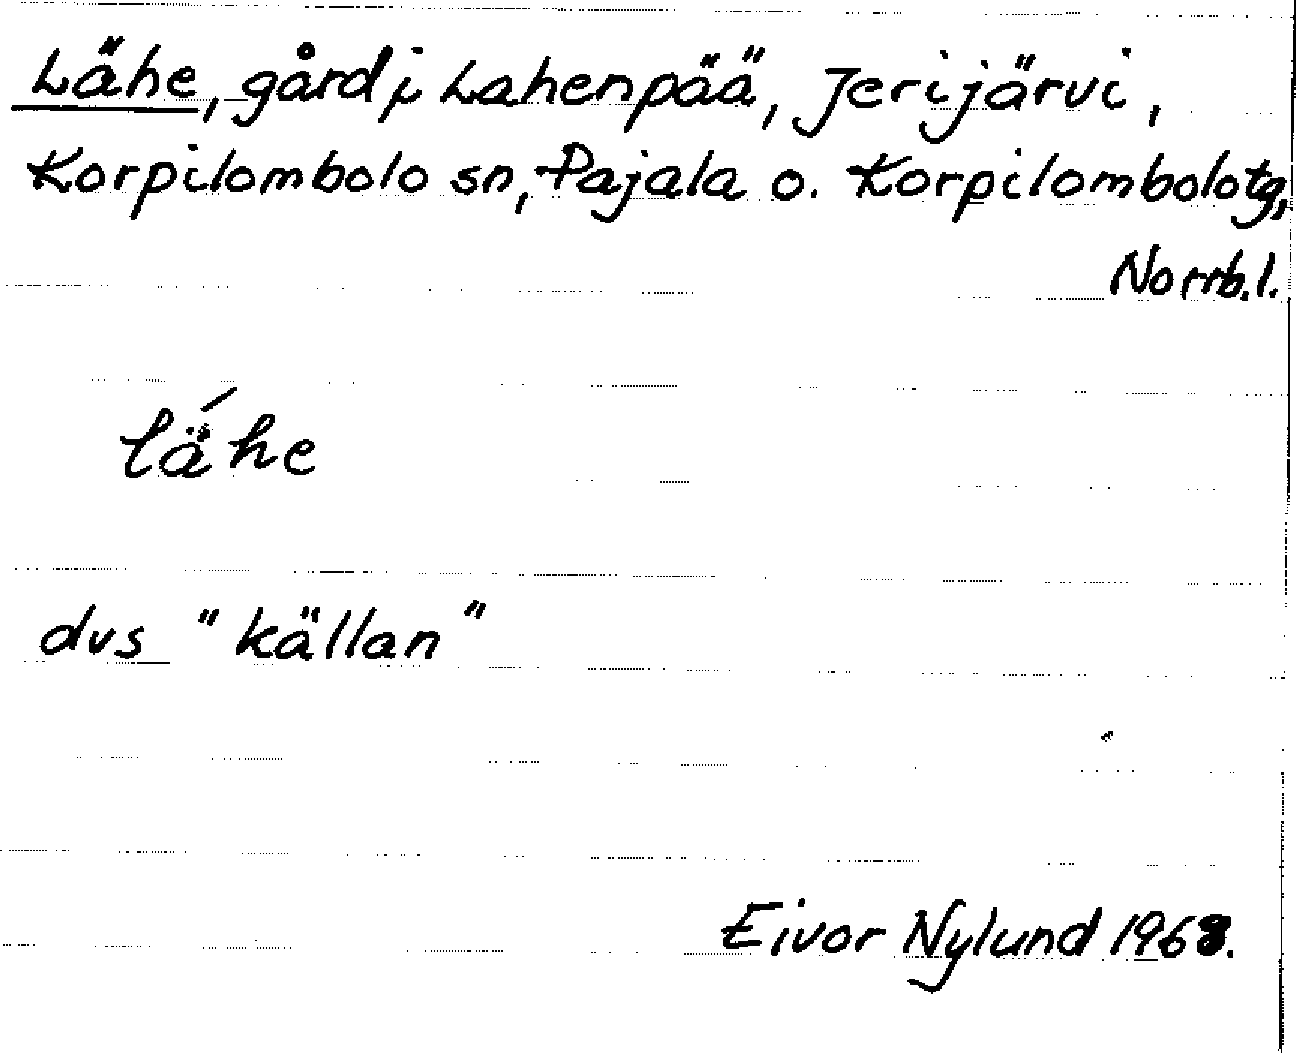 Lähe, gård i Lahenpää, Jerijärvi,
Korpilombolo sn, Pajala o. Korpilombolo tg,
Norrb. l.
lä́he
dvs "källan"
Eivor Nylund 1968.